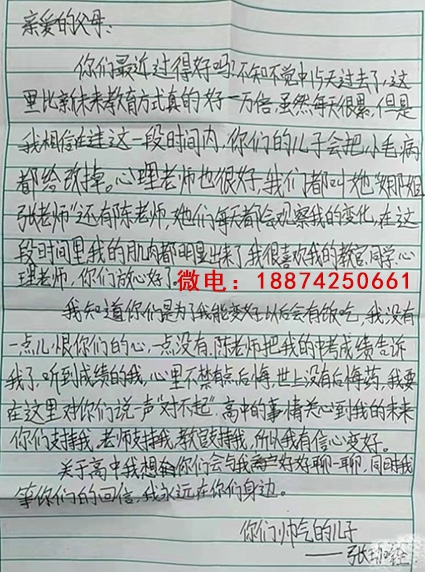 亲爱的父母:
你们最近过得好吗?不知不觉中15天过去了,这
里比京伏未来教育方式真的好一万倍,虽然每天很累,但是
我相信在这一段时间内,你们的儿子会把小毛病
都给改掉。心理老师也很好,我们都叫她"明阳姐
张老师"还有陈老师,她们每天都会观察我的变化,在这
段时间里我的肌肉都明显出来了,我很喜欢我的教官,同学,心
理老师,你们放心好了。
微电:18874250661
我知道你们是为了我能变好以后会有饭吃,我没有
一点儿恨你们的心,一点没有,陈老师把我的中考成绩告诉
我了,听到成绩的我,心里不禁有点后悔,世上没有后悔药,我要
在这里对你们说一声"对不起",高中的事情关心到我的未来
你们支持我,老师支持我,教官支持我,所以我有信心变好。
关于高中我想你们会与我好好聊一聊,同时我
等你们的回信,我永远在你们身边。
你们帅气的儿子
——张